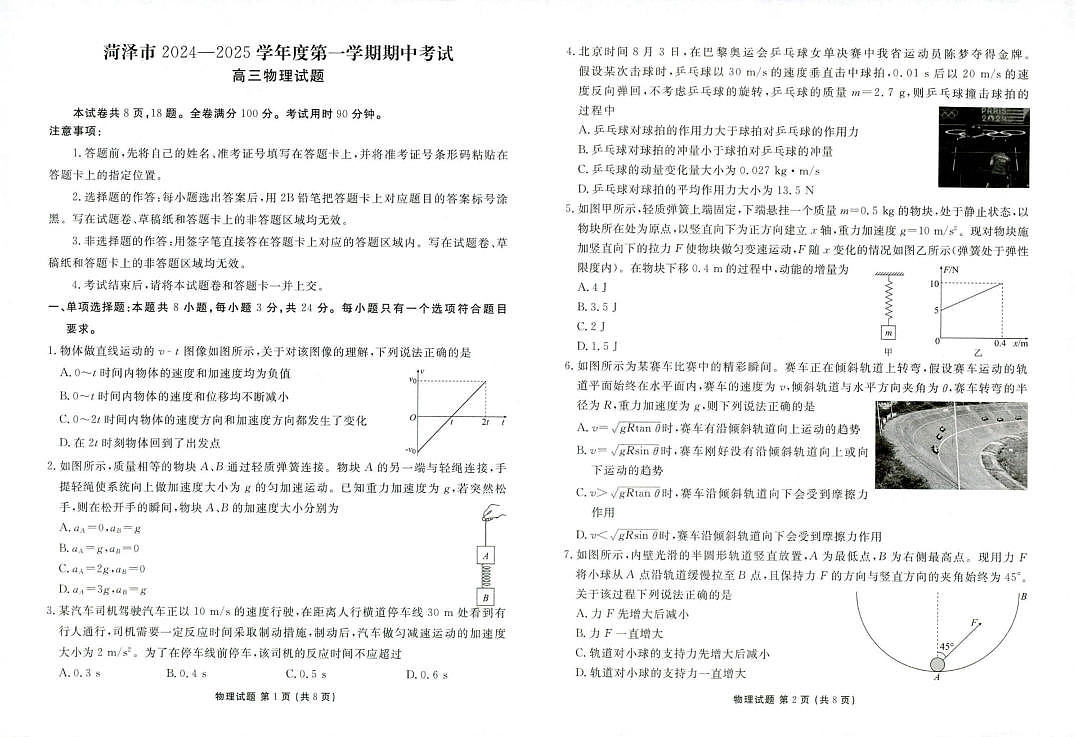 菏泽市 2024—2025 学年度第一学期期中考试
高三物理试题
本试卷共 8 页,18 题。全卷满分 100 分。考试用时 90 分钟。
注意事项:
1. 答题前,先将自己的姓名、准考证号填写在答题卡上,并将准考证号条形码粘贴在
答题卡上的指定位置。
2. 选择题的作答:每小题选出答案后,用 2B 铅笔把答题卡上对应题目的答案标号涂
黑。写在试题卷、草稿纸和答题卡上的非答题区域均无效。
3. 非选择题的作答:用签字笔直接答在答题卡上对应的答题区域内。写在试题卷、草
稿纸和答题卡上的非答题区域均无效。
4. 考试结束后,请将本试题卷和答题卡一并上交。
一、单项选择题:本题共 8 小题,每小题 3 分,共 24 分。每小题只有一个选项符合题目
要求。
1. 物体做直线运动的 v-t 图像如图所示,关于对该图像的理解,下列说法正确的是
A. 0～t 时间内物体的速度和加速度均为负值
B. 0～t 时间内物体的速度和位移均不断减小
C. 0～2t 时间内物体的速度方向和加速度方向都发生了变化
D. 在 2t 时刻物体回到了出发点
v
v₀
O
t
2t
t
-v₀
2. 如图所示,质量相等的物块 A、B 通过轻质弹簧连接。物块 A 的另一端与轻绳连接,手
提轻绳使系统向上做加速度大小为 g 的匀加速运动。已知重力加速度为 g,若突然松
手,则在松开手的瞬间,物块 A、B 的加速度大小分别为
A. aA=0,aB=g
B. aA=g,aB=0
C. aA=2g,aB=0
D. aA=3g,aB=g
A
B
3. 某汽车司机驾驶汽车正以 10 m/s 的速度行驶,在距离人行横道停车线 30 m 处看到有
行人通行,司机需要一定反应时间采取制动措施,制动后,汽车做匀减速运动的加速度
大小为 2 m/s²。为了在停车线前停车,该司机的反应时间不应超过
A. 0.3 s B. 0.4 s C. 0.5 s D. 0.6 s
物理试题 第 1 页 (共 8 页)
4. 北京时间 8 月 3 日,在巴黎奥运会乒乓球女单决赛中我省运动员陈梦夺得金牌。
假设某次击球时,乒乓球以 30 m/s 的速度垂直击中球拍,0.01 s 后以 20 m/s 的速
度反向弹回,不考虑乒乓球的旋转,乒乓球的质量 m=2.7 g,则乒乓球撞击球拍的
过程中
A. 乒乓球对球拍的作用力大于球拍对乒乓球的作用力
B. 乒乓球对球拍的冲量小于球拍对乒乓球的冲量
C. 乒乓球的动量变化量大小为 0.027 kg·m/s
D. 乒乓球对球拍的平均作用力大小为 13.5 N
PARIS
2024
5. 如图甲所示,轻质弹簧上端固定,下端悬挂一个质量 m=0.5 kg 的物块,处于静止状态,以
物块所在处为原点,以竖直向下为正方向建立 x 轴,重力加速度 g=10 m/s²。现对物块施
加竖直向下的拉力 F 使物块做匀变速运动,F 随 x 变化的情况如图乙所示(弹簧处于弹性
限度内)。在物块下移 0.4 m 的过程中,动能的增量为
A. 4 J
B. 3.5 J
C. 2 J
D. 1.5 J
m
甲
F/N
10
5
0
0.4
x/m
乙
6. 如图所示为某赛车比赛中的精彩瞬间。赛车正在倾斜轨道上转弯,假设赛车运动的轨
道平面始终在水平面内,赛车的速度为 v,倾斜轨道与水平方向夹角为 θ,赛车转弯的半
径为 R,重力加速度为 g,则下列说法正确的是
A. v=√gRtan θ时,赛车有沿倾斜轨道向上运动的趋势
B. v=√gRsin θ时,赛车刚好没有沿倾斜轨道向上或向
下运动的趋势
C. v>√gRtan θ时,赛车沿倾斜轨道向下会受到摩擦力
作用
D. v<√gRsin θ时,赛车沿倾斜轨道向下会受到摩擦力作用
7. 如图所示,内壁光滑的半圆形轨道竖直放置,A 为最低点,B 为右侧最高点。现用力 F
将小球从 A 点沿轨道缓慢拉至 B 点,且保持力 F 的方向与竖直方向的夹角始终为 45°。
关于该过程下列说法正确的是
A. 力 F 先增大后减小
B. 力 F 一直增大
C. 轨道对小球的支持力先增大后减小
D. 轨道对小球的支持力一直增大
B
F
45°
A
物理试题 第 2 页 (共 8 页)